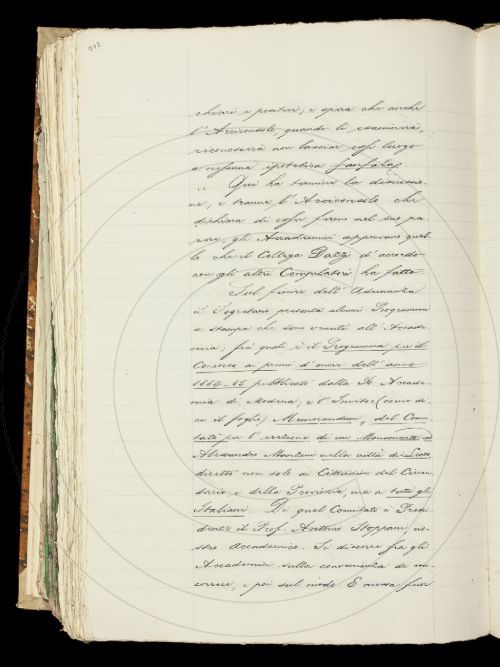 902
chiari e positivi; e spera che anche
l'Arciconsolo, quando li esaminerà,
riconoscerà non lasciar essi luogo
a nessuna ipotetica fanfaluca
Qui ha termine la discussio-
ne, e tranne l'Arciconsolo che
dichiara di esser fermo nel suo pa-
rere, gli Accademici approvano quel-
lo che il Collega Dalzi d'accordo
con gli altri Compilatori ha fatto.
Sul finire dell'Adunanza
il Segretario presenta alcuni Programmi
a stampa che sono venuti all'Accade-
mia, fra quali, è il Programma pe'l
Concorso a premi d'onore dell'anno
1884-85 pubblicato dalla R. Accade-
mia di Modena; e l'Invito (come di-
ce il foglio) Memorandum, del Comi-
tato per l'erezione di un Monumento ad
Alessandro Manzoni nella città di Lecco
diretto non solo ai Cittadini del Circon-
dario, e della Provincia, ma a tutti gli
Italiani. Di quel Comitato è Presi-
dente il Prof. Antonio Stoppani, no-
stro Accademico. Si discorre fra gli
Accademici sulla convenienza di con-
correre, e poi sul modo. E messa fuor